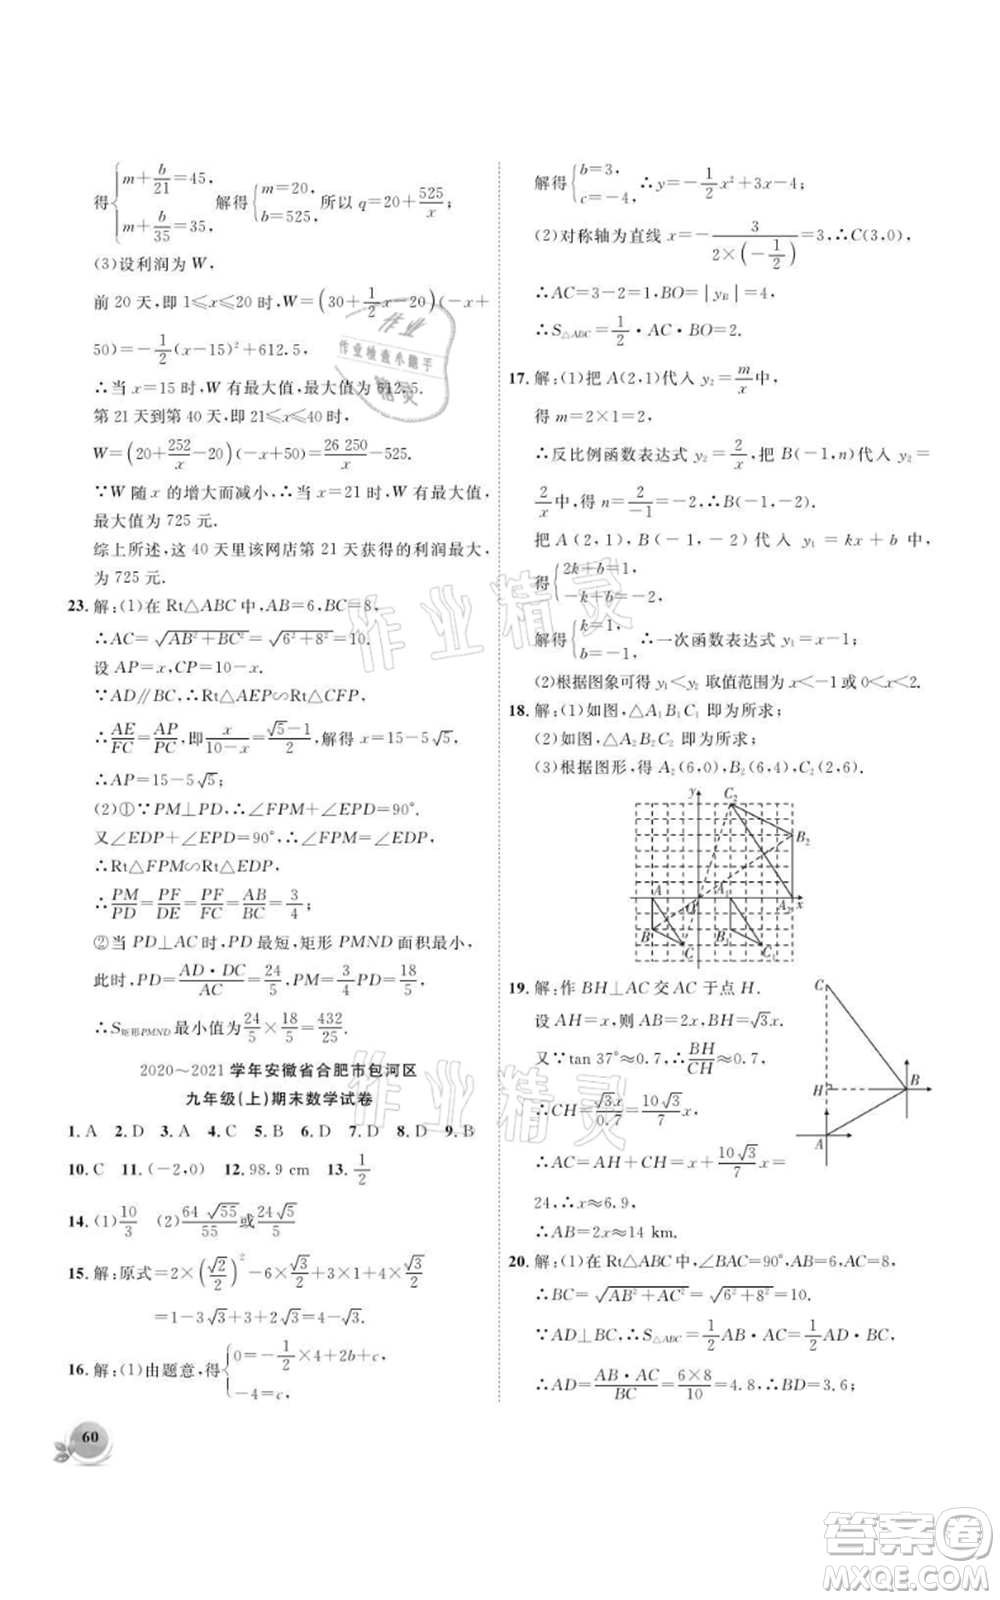 得{m+b/21=45, m+b/35=35, 解得{m=20, b=525, 所以 q=20+525/x;
(3)设利润为 W,
前 20 天,即 1≤x≤20 时,W=(30+1/2x-20)(-x+
50)=-1/2(x-15)²+612.5.
∴当 x=15 时,W 有最大值,最大值为 612.5.
第 21 天到第 40 天,即 21≤x≤40 时,
W=(20+252/x-20)(-x+50)=26 250/x-525.
∵W 随 x 的增大而减小,∴当 x=21 时,W 最大,
最大值为 725 元.
综上所述,这 40 天里该网店第 21 天获得的利润最大,
为 725 元.
23. 解:(1)在 Rt△ABC 中,AB=6,BC=8,
∴AC=√(AB²+BC²)=√(6²+8²)=10.
设 AP=x,CP=10-x.
∵AD∥BC,∴Rt△AEP∽Rt△CFP,
∴AE/FC=AP/PC,即x/(10-x)=(√5-1)/2,解得 x=15-5√5.
∴AP=15-5√5.
(2)①∵PM⊥PD,∴∠FPM+∠EPD=90°.
又∠EDP+∠EPD=90°,∴∠FPM=∠EDP,
∴Rt△FPM∽Rt△EDP,
∴PM/PD=PF/DE=PF/FC=AB/BC=3/4;
②当 PD⊥AC 时,PD 最短,矩形 PMND 面积最小,
此时,PD=AD·DC/AC=24/5,PM=3/4PD=18/5,
∴S矩形PMND最小值为24/5×18/5=432/25.
2020～2021 学年安徽省合肥市包河区
九年级(上)期末数学试卷
1. A 2. D 3. A 4. C 5. B 6. D 7. D 8. D 9. B
10. C 11. (-2,0) 12. 98.9 cm 13. 1/2
14. (1)10/3 (2)64√55/55或24√5/5
15. 解:原式=2×(√2/2)²-6×√3/2+1/2+6×√3/3
=1-3√3+3+2√3=4-√3.
16. 解:(1)由题意,得{0=-1/2×4+2b+c, -4=c,
60
解得{b=3, c=-4, ∴y=-1/2x²+3x-4;
(2)对称轴为直线 x=-3/(2×(-1/2))=3,∴C(3,0),
∴AC=3-2=1,BO=|yB|=4,
∴S△ABC=1/2·AC·BO=2.
17. 解:(1)把 A(2,1)代入 y₂=m/x中,
得 m=2×1=2,
∴反比例函数表达式 y₂=2/x,把 B(-1,n)代入 y₂=
2/x中,得 n=2/-1=-2,∴B(-1,-2).
把 A(2,1),B(-1,-2)代入 y₁=kx+b 中,
得{2k+b=1, -k+b=-2,
解得{k=1, b=-1, ∴一次函数表达式 y₁=x-1;
(2)根据图象可得 y₁<y₂ 取值范围为 x<-1 或0<x<2.
18. 解:(1)如图,△A₁B₁C₁ 即为所求;
(2)如图,△A₂B₂C₂ 即为所求;
(3)根据图形,得 A₂(6,0),B₂(6,4),C₂(2,6).
y
C₂
B₂
A
O
A₂ x
B
B₁
C
C₁
19. 解:作 BH⊥AC 交 AC 于点 H.
设 AH=x,则 AB=2x,BH=√3x.
又∵tan 37°=BH/CH,
∴CH=√3x/0.7=10√3x/7,
∴AC=AH+CH=x+10√3/7x=
24,∴x≈6.9,
∴AB=2x≈14 km.
C
H
B
A
20. 解:(1)在 Rt△ABC 中,∠BAC=90°,AC=8,
∴BC=√(AB²+AC²)=√(6²+8²)=10.
∵AD⊥BC,∴S△ABC=1/2AB·AC=1/2AD·BC,
∴AD=AB·AC/BC=6×8/10=4.8,∴BD=3.6;
作业
作业检查小帮手
精灵
作业精灵
作业精灵
答案圈
MXQE.COM